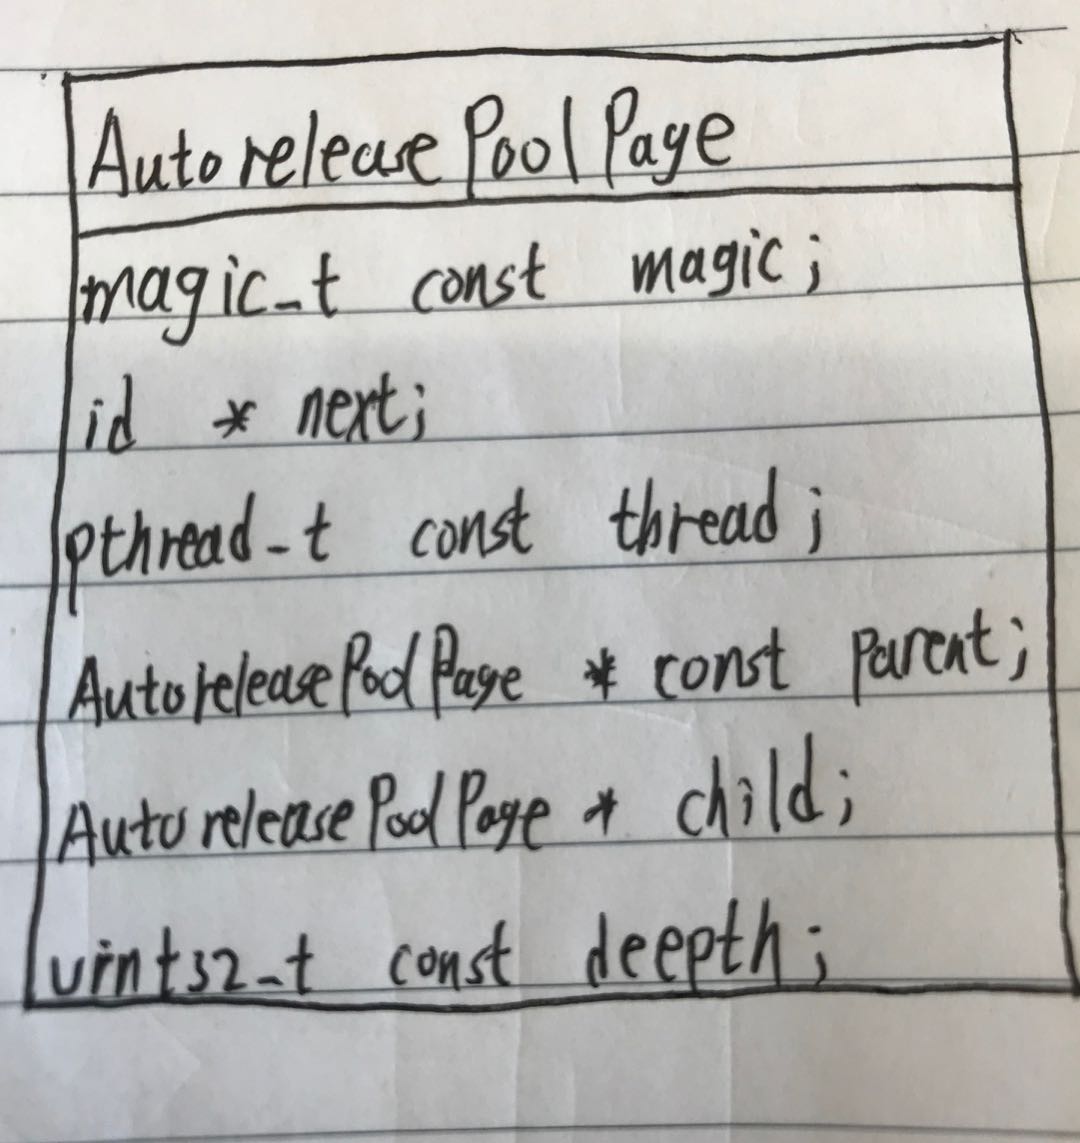 AutoreleasePoolPage
magic_t const magic;
id * next;
pthread_t const thread;
AutoreleasePoolPage * const parent;
AutoreleasePoolPage * child;
uint32_t const deepth;